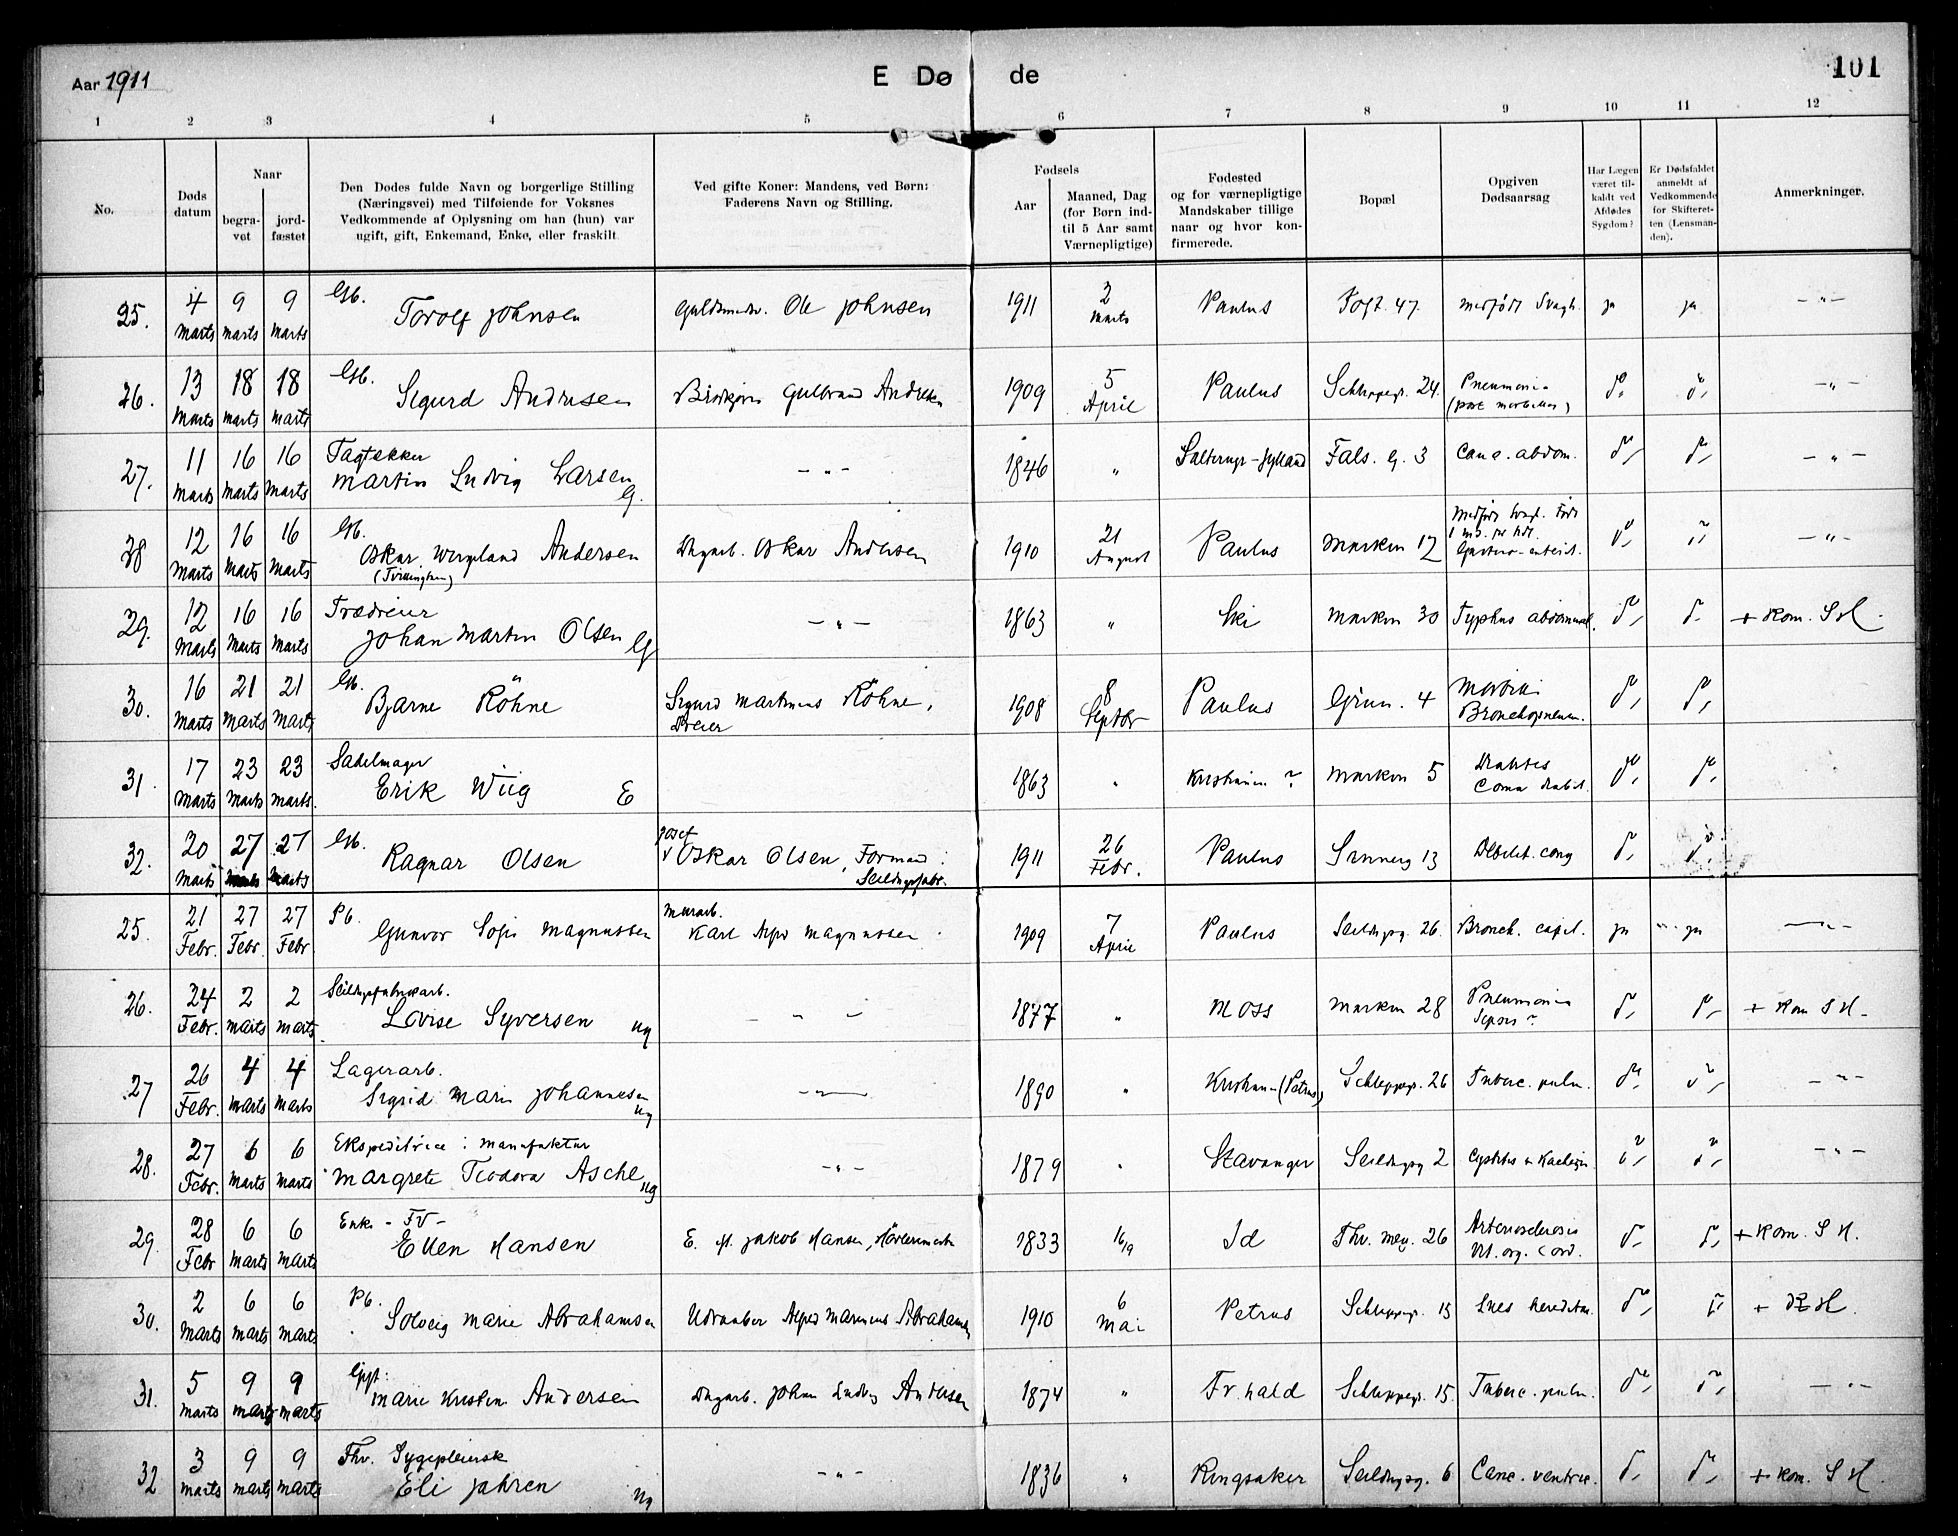 Aar 1911 E Dø de 101
1 2 3 4 5 6 7 8 9 10 11 12
No.
Døds datum
Naar
begra- vet
jord- fæstet
Den Dødes fulde Navn og borgerlige Stilling
(Næringsvei) med Tilføiende for Voksnes
Vedkommende af Oplysning om han (hun) var
ugift, gift, Enkemand, Enke, eller fraskilt.
Ved gifte Koner: Mandens, ved Børn:
Faderens Navn og Stilling.
Fødsels
Aar
Maaned, Dag
(for Børn ind-
til 5 Aar samt
Værnepligtige)
Fødested
og for værnepligtige
Mandskaber tillige
naar og hvor kon-
firmerede.
Bopæl
Opgiven
Dødsaarsag
Har Lægen
været til-
kaldt ved
Afdødes
Sygdom?
Er Dødsfaldet
anmeldt af
Vedkommende
for Skifteret-
ten (Lensman-
den).
Anmerkninger.
25. 4 Marts 9 Marts 9 Marts Gb. Torolf Johnsen Guldsmedsv. Ole Johnsen 1911 2 Marts Paulus Fogt. 47. Medfødt Svagh. ja ja – " –
26. 13 Marts 18 Marts 18 Marts Gb. Sigurd Andresen Gulbrand Andresen 1909 5 April Paulus Schleppegr. 24. Pneumonia (post morbillos) do. do. – " –
27. 11 Marts 16 Marts 16 Marts Tagtekker Martin Ludvig Larsen G. – " – 1846 " Jylland Fals. G. 3 Canc. abdom. do. do. – " –
28 12 Marts 16 Marts 16 Marts Gb. Oskar Wergeland Andersen (Tvilling) Dagarb. Oskar Andersen 1910 21 August Paulus Markvn 12 Medfødt Svagh. født 1 md. før tid. Gastro-enterit. do. do. – " –
29. 12 Marts 16 Marts 16 Marts Trædreier Johan Martin Olsen G – " – 1863 " Ski Markvn 30 Typhus abdominal. do. do. + Kom. S H.
30. 16 Marts 21 Marts 21 Marts Gb. Bjarne Röhne Sigurd Martinius Röhne, Dreier 1908 8 Septbr Paulus Grün. 4 Morbilli Bronchopneum. do. do.
31. 17 Marts 23 Marts 23 Marts Sadelmager Erik Wiig E 1863 " Kristiania ? Markvn 5 Diabetes Coma diabet. do. do.
32. 20 Marts 27 Marts 27 Marts Gb. Ragnar Olsen Josef Oskar Olsen, Formand i Seildugsfabr. 1911 26 Febr. Paulus Sannerg 13 Debilit. cong do. do.
25. 21 Febr. 27 Febr. 27 Febr. Pb. Gunvor Sofie Magnussen Murarb. Karl Alfred Magnussen 1909 7 April Paulus Seildugsg. 26. Bronch. capil. ja ja – " –
26. 24 Febr. 2 Marts 2 Marts Seildugsfabrikarb. Lovise Syversen ug – " – 1877 " Moss Markvn 28 Pneumonia Sepsis ? do. do. + Kom S H.
27 26 Febr. 4 Marts 4 Marts Lagerarb. Sigrid Marie Johannesen ug – " – 1890 " Kristiania (Petrus) Schleppegr. 26 Tuberc. pulm. do. do. – " –
28. 27 Febr. 6 Marts 6 Marts Ekspeditrice i manufaktur Margrete Teodora Aschl ug – " – 1879 " Stavanger Seildugsg 2 Cystitis + Kachexi do. do. – " –
29. 28 Febr 6 Marts 6 Marts Enke – FV – Ellen Hansen E. ef. Jakob Hansen, 1833 16/9 Id Thv. Mey. 26 Arteriosclerosis Vit. org. Cord. do. do. + Kom. S H.
30. 2 Marts 6 Marts 6 Marts Pb. Solveig Marie Abrahamsen Alfred Marinius Abrahamsen 1910 6 Mai Petrus Schleppegr. 15 Lues hereditar. do. do.
31. 5 Marts 9 Marts 9 Marts Gift: Marie Kristine Andersen Dagarb. Johan Ludvig Andersen 1874 " Fr.hald Schleppegr. 15. Tuberc. pulm. do. do. – " –
32 3 Marts 9 Marts 9 Marts Fhv. Sygepleierske Eli Jahren ug – " – 1836 " Ringsaker Seildugsg. 6 Canc. ventric. do. do. + Kom. S H.